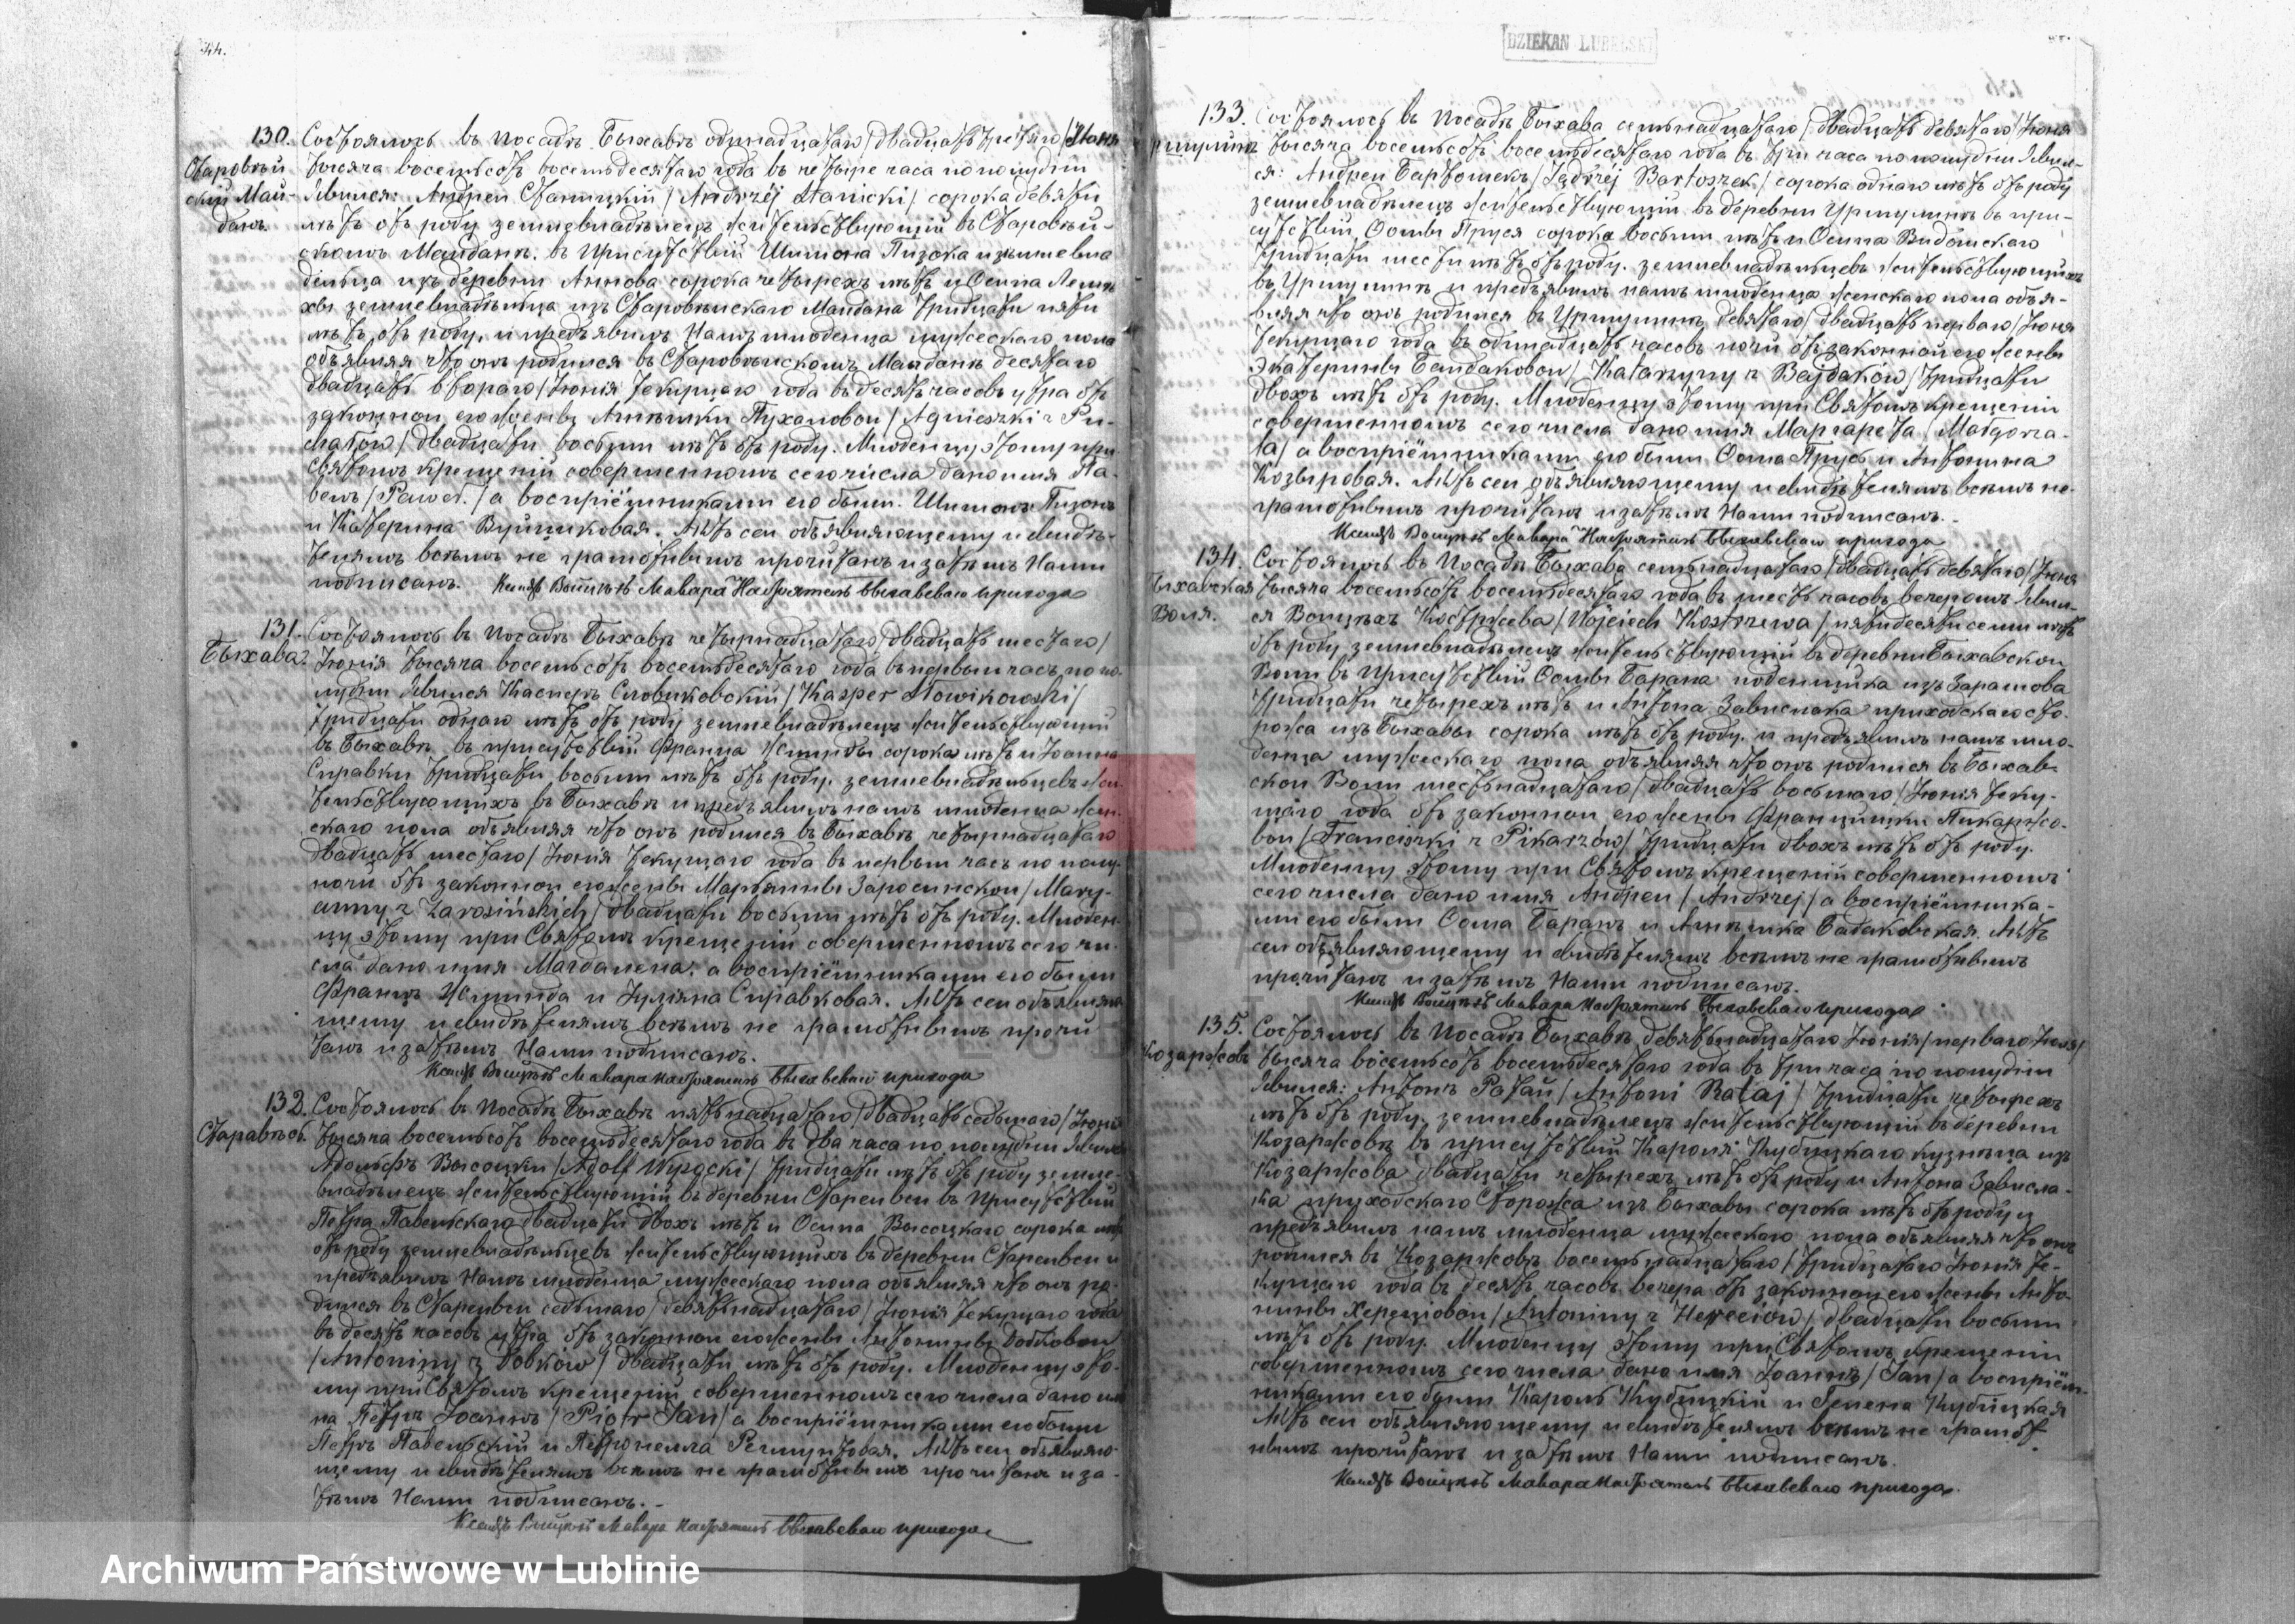 44.
130. Состоялось въ посадѣ Быхавѣ одинадцатаго /двадцать третяго/ Іюня
Старовѣй- тысяча восемьсотъ восемьдесятаго года въ четыре часа по полудни
скій Май- явился: Андрей Станицкій /Andrzéj Stanicki/ сорока девяти
данъ. лѣтъ отъ роду земневладѣлецъ жительствующій въ Старовѣй-
скомъ Майданѣ. въ присутствіи Шимона Пизока
изъ деревни Аннова сорока четырехъ лѣтъ и Осипа
земневладѣльца изъ Старовѣйскаго Майдана тридцати пяти
лѣтъ отъ роду, и предъявилъ намъ младенца мужескаго пола
объявляя что онъ родился въ Старовѣйскомъ Майданѣ десятаго
двадцать втораго /Іюня текущаго года въ десять часовъ утра отъ
законной его жены Агнѣшки Пухаловой /Agnieszki z
/двадцати восьми лѣтъ отъ роду. Младенцу этому при
Святомъ крещеніи совершенномъ сего числа дано имя Па-
велъ /Paweł/ а воспріёмниками его были. Шимонъ Пизонъ
и Катерина Вуйциковая. Актъ сей объявляющему и свидѣ-
телямъ всѣмъ не грамотнымъ прочитанъ и затѣмъ Нами
подписанъ. Ксендзъ Войцѣхъ Мавара Настоятель Быхавскаго прихода
131. Состоялось въ посадѣ Быхавѣ четырнадцатаго /двадцать шестаго/
Быхава. Іюня тысяча восемьсотъ восемьдесятаго года въ первый часъ по по-
лудни явился Касперъ Словиковскій /Kasper Słowikowski/
тридцати одного лѣтъ отъ роду земневладѣлецъ жительствующій
въ Быхавѣ, въ присутствіи Франца сорока лѣтъ и Іоанна
Справки тридцати восьми лѣтъ отъ роду. земневладѣльцевъ жи-
тельствующихъ въ Быхавѣ и предъявилъ намъ младенца жен-
скаго пола объявляя что онъ родился въ Быхавѣ четырнадцатаго
двадцать шестаго/ Іюня текущаго года въ первый часъ по полу-
ночи отъ законной его жены Марьянны Заросинской /Mary-
anny z Zarosińskich/ двадцати восьми лѣтъ отъ роду. Младен-
цу этому при Святомъ крещеніи совершенномъ сего чи-
сла дано имя Магдалена, а воспріёмниками его были
Францъ и Іуліяна Справковая. Актъ сей объявляю-
щему и свидѣтелямъ всѣмъ не грамотнымъ прочи-
танъ и затѣмъ Нами подписанъ.
Ксендзъ Войцѣхъ Мавара Настоятель Быхавскаго прихода
132. Состоялось въ посадѣ Быхавѣ пятьнадцатаго /двадцать седьмаго/ Іюня
Старавѣсь. тысяча восемьсотъ восемьдесятаго года въ два часа по полудни явился
Адольфъ Высоцкій /Adolf Wysocki/ тридцати лѣтъ отъ роду земле-
владѣлецъ жительствующій въ деревни Старейвси въ присутствіи
Петра Павельскаго двадцати двохъ лѣтъ и Осипа Высоцкаго сорока лѣтъ
отъ роду земневладѣльцевъ жительствующихъ въ деревни Старейвси и
предъявилъ намъ младенца мужескаго пола объявляя что онъ ро-
дился въ Старейвси седьмаго /девятьнадцатаго/ Іюня текущаго года
въ десять часовъ утра отъ законной его жены Антонины Добковой
/Antoniny z Dobków/ двадцати лѣтъ отъ роду. Младенцу это-
му при Святомъ крещеніи совершенномъ сего числа дано име-
на Петръ Іоаннъ /Piotr Jan/ а воспріёмниками его были
Петръ Павельскій и Петронелла. Актъ сей объявляю-
щему и свидѣтелямъ всѣмъ не грамотнымъ прочитанъ и за-
тѣмъ Нами подписанъ.
Ксендзъ Войцѣхъ Мавара Настоятель Быхавскаго прихода
DZIEKAN LUBELSKI
133. Состоялось въ посадѣ Быхава семьнадцатаго /двадцать девятаго/ Іюня
тысяча восемьсотъ восемьдесятаго года въ три часа по полудни явил-
ся: Андрей Бартошекъ /Jędrzéj Bartoszek/ сорока одного лѣтъ отъ роду
земневладѣлецъ жительствующій въ деревни Уршулинѣ въ при-
сутствіи Ѳомы Пруся сорока восьми лѣтъ и Осипа
тридцати шести лѣтъ отъ роду. земневладѣльцевъ жительствующихъ
въ Уршулинѣ и предъявилъ намъ младенца женскаго пола объя-
вляя что онъ родился въ Уршулинѣ девятаго /двадцать перваго/ Іюня
текущаго года въ одинадцать часовъ ночи отъ законной его жены
Экатерины Байдаковой /Katarzyny z Bajdaków/ тридцати
двохъ лѣтъ отъ роду. Младенцу этому при Святомъ крещеніи
совершенномъ сего числа дано имя Маргарета /Małgorza-
ta/ а воспріёмниками его были Ѳома Прусь и Антонина
Козыровая. Актъ сей объявляющему и свидѣтелямъ всѣмъ не-
грамотнымъ прочитанъ и затѣмъ Нами подписанъ.
Ксендзъ Войцѣхъ Мавара Настоятель Быхавскаго прихода
134. Состоялось въ посадѣ Быхава семьнадцатаго /двадцать девятаго/ Іюня
Быхавская тысяча восемьсотъ восемьдесятаго года въ шесть часовъ вечеромъ явил-
Воля. ся Войцѣхъ Костржева /Wojciech Kostrzewa/ пятидесяти семи лѣтъ
отъ роду земневладѣлецъ жительствующій въ деревни Быхавской
Воли въ присутствіи Ѳомы Барана поденщика изъ Зарашова
тридцати четырехъ лѣтъ и Антона Зависляка приходскаго сто-
рожа изъ Быхавы сорока лѣтъ отъ роду. и предъявилъ намъ мла-
денца мужескаго пола объявляя что онъ родился въ Быхав-
ской Воли шестьнадцатаго /двадцать восьмаго/ Іюня теку-
щаго года отъ законной его жены Францишки Пикаржо-
вой /Franciszki z Pikarzów/ тридцати двохъ лѣтъ отъ роду.
Младенцу этому при Святомъ крещеніи совершенномъ
сего числа дано имя Андрей /Andrzej/ а воспріёмника-
ми его были Ѳома Баранъ и Агнѣшка. Актъ
сей объявляющему и свидѣтелямъ всѣмъ не грамотнымъ
прочитанъ и затѣмъ Нами подписанъ.
Ксендзъ Войцѣхъ Мавара Настоятель Быхавскаго прихода
135. Состоялось въ посадѣ Быхавѣ девятьнадцатаго Іюня /перваго Іюля/
Козаржовъ тысяча восемьсотъ восемьдесятаго года въ три часа по полудни
явился: Антонъ Ратай /Antoni Rataj/ тридцати четырехъ
лѣтъ отъ роду, земневладѣлецъ жительствующій въ деревни
Козаржовѣ въ присутствіи Кароля Кубицкаго кузнеца изъ
Козаржова двадцати четырехъ лѣтъ отъ роду и Антона Зависля-
ка приходскаго сторожа изъ Быхавы сорока лѣтъ отъ роду и
предъявилъ намъ младенца мужескаго пола объявляя что онъ
родился въ Козаржовѣ восемьнадцатаго /тридцатаго Іюня те-
кущаго года въ десять часовъ вечера отъ законной его жены Анто-
нины Херецовой /Antoniny z Hereciów/ двадцати восьми
лѣтъ отъ роду. Младенцу этому при Святомъ крещеніи
совершенномъ сего числа дано имя Іоаннъ /Jan/ а воспріём-
никами его были Кароль Кубицкій и Гелена Кубицкая
Актъ сей объявляющему и свидѣтелямъ всѣмъ не грамот-
нымъ прочитанъ и затѣмъ Нами подписанъ.
Ксендзъ Войцѣхъ Мавара Настоятель Быхавскаго прихода.
Archiwum Państwowe w Lublinie